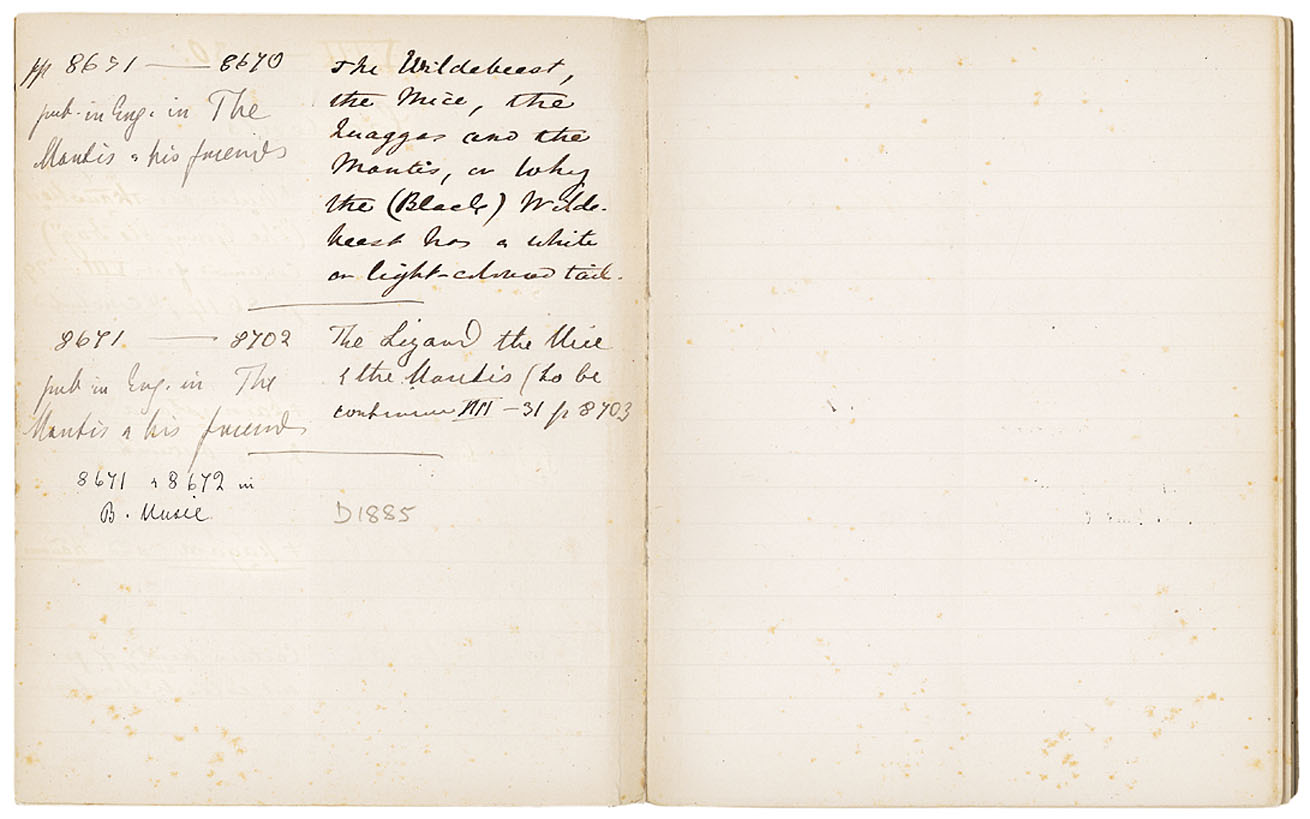 pp 8651 — 8670
pub. in Eng. in The
Mantis & his friends
The Wildebeest,
the Mice, the
Quaggas and the
Mantis, or Why
the (Black) Wilde-
beest has a white
or light-coloured tail.
8671 — 8702
pub in Eng. in The
Mantis & his friends
The Lizard the Mice
& the Mantis (to be
continued VIII - 31 p 8703
8671 & 8672 in
B. Music
D1885